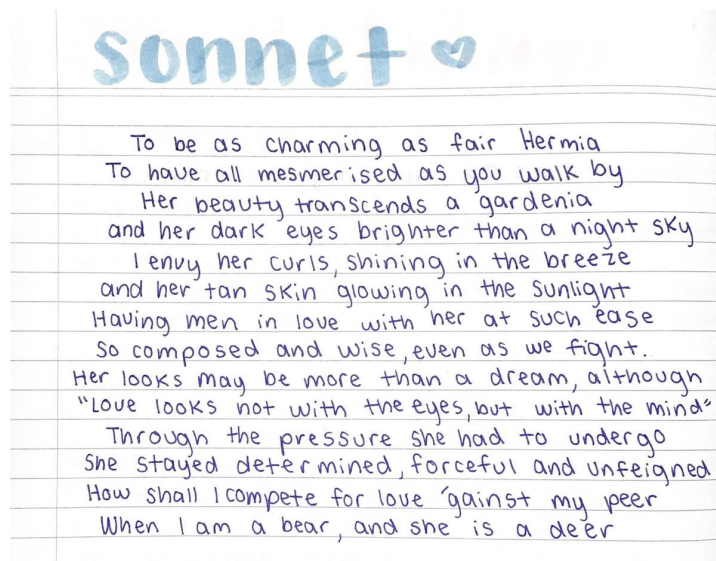 sonnet
To be as charming as fair Hermia
To have all mesmerised as you walk by
Her beauty transcends a gardenia
and her dark eyes brighter than a night sky
I envy her curls, shining in the breeze
and her tan skin glowing in the sunlight
Having men in love with her at such ease
So composed and wise, even as we fight.
Her looks may be more than a dream, although
"Love looks not with the eyes, but with the mind"
Through the pressure she had to undergo
She stayed determined, forceful and unfeigned
How shall I compete for love 'gainst my peer
When I am a bear, and she is a deer